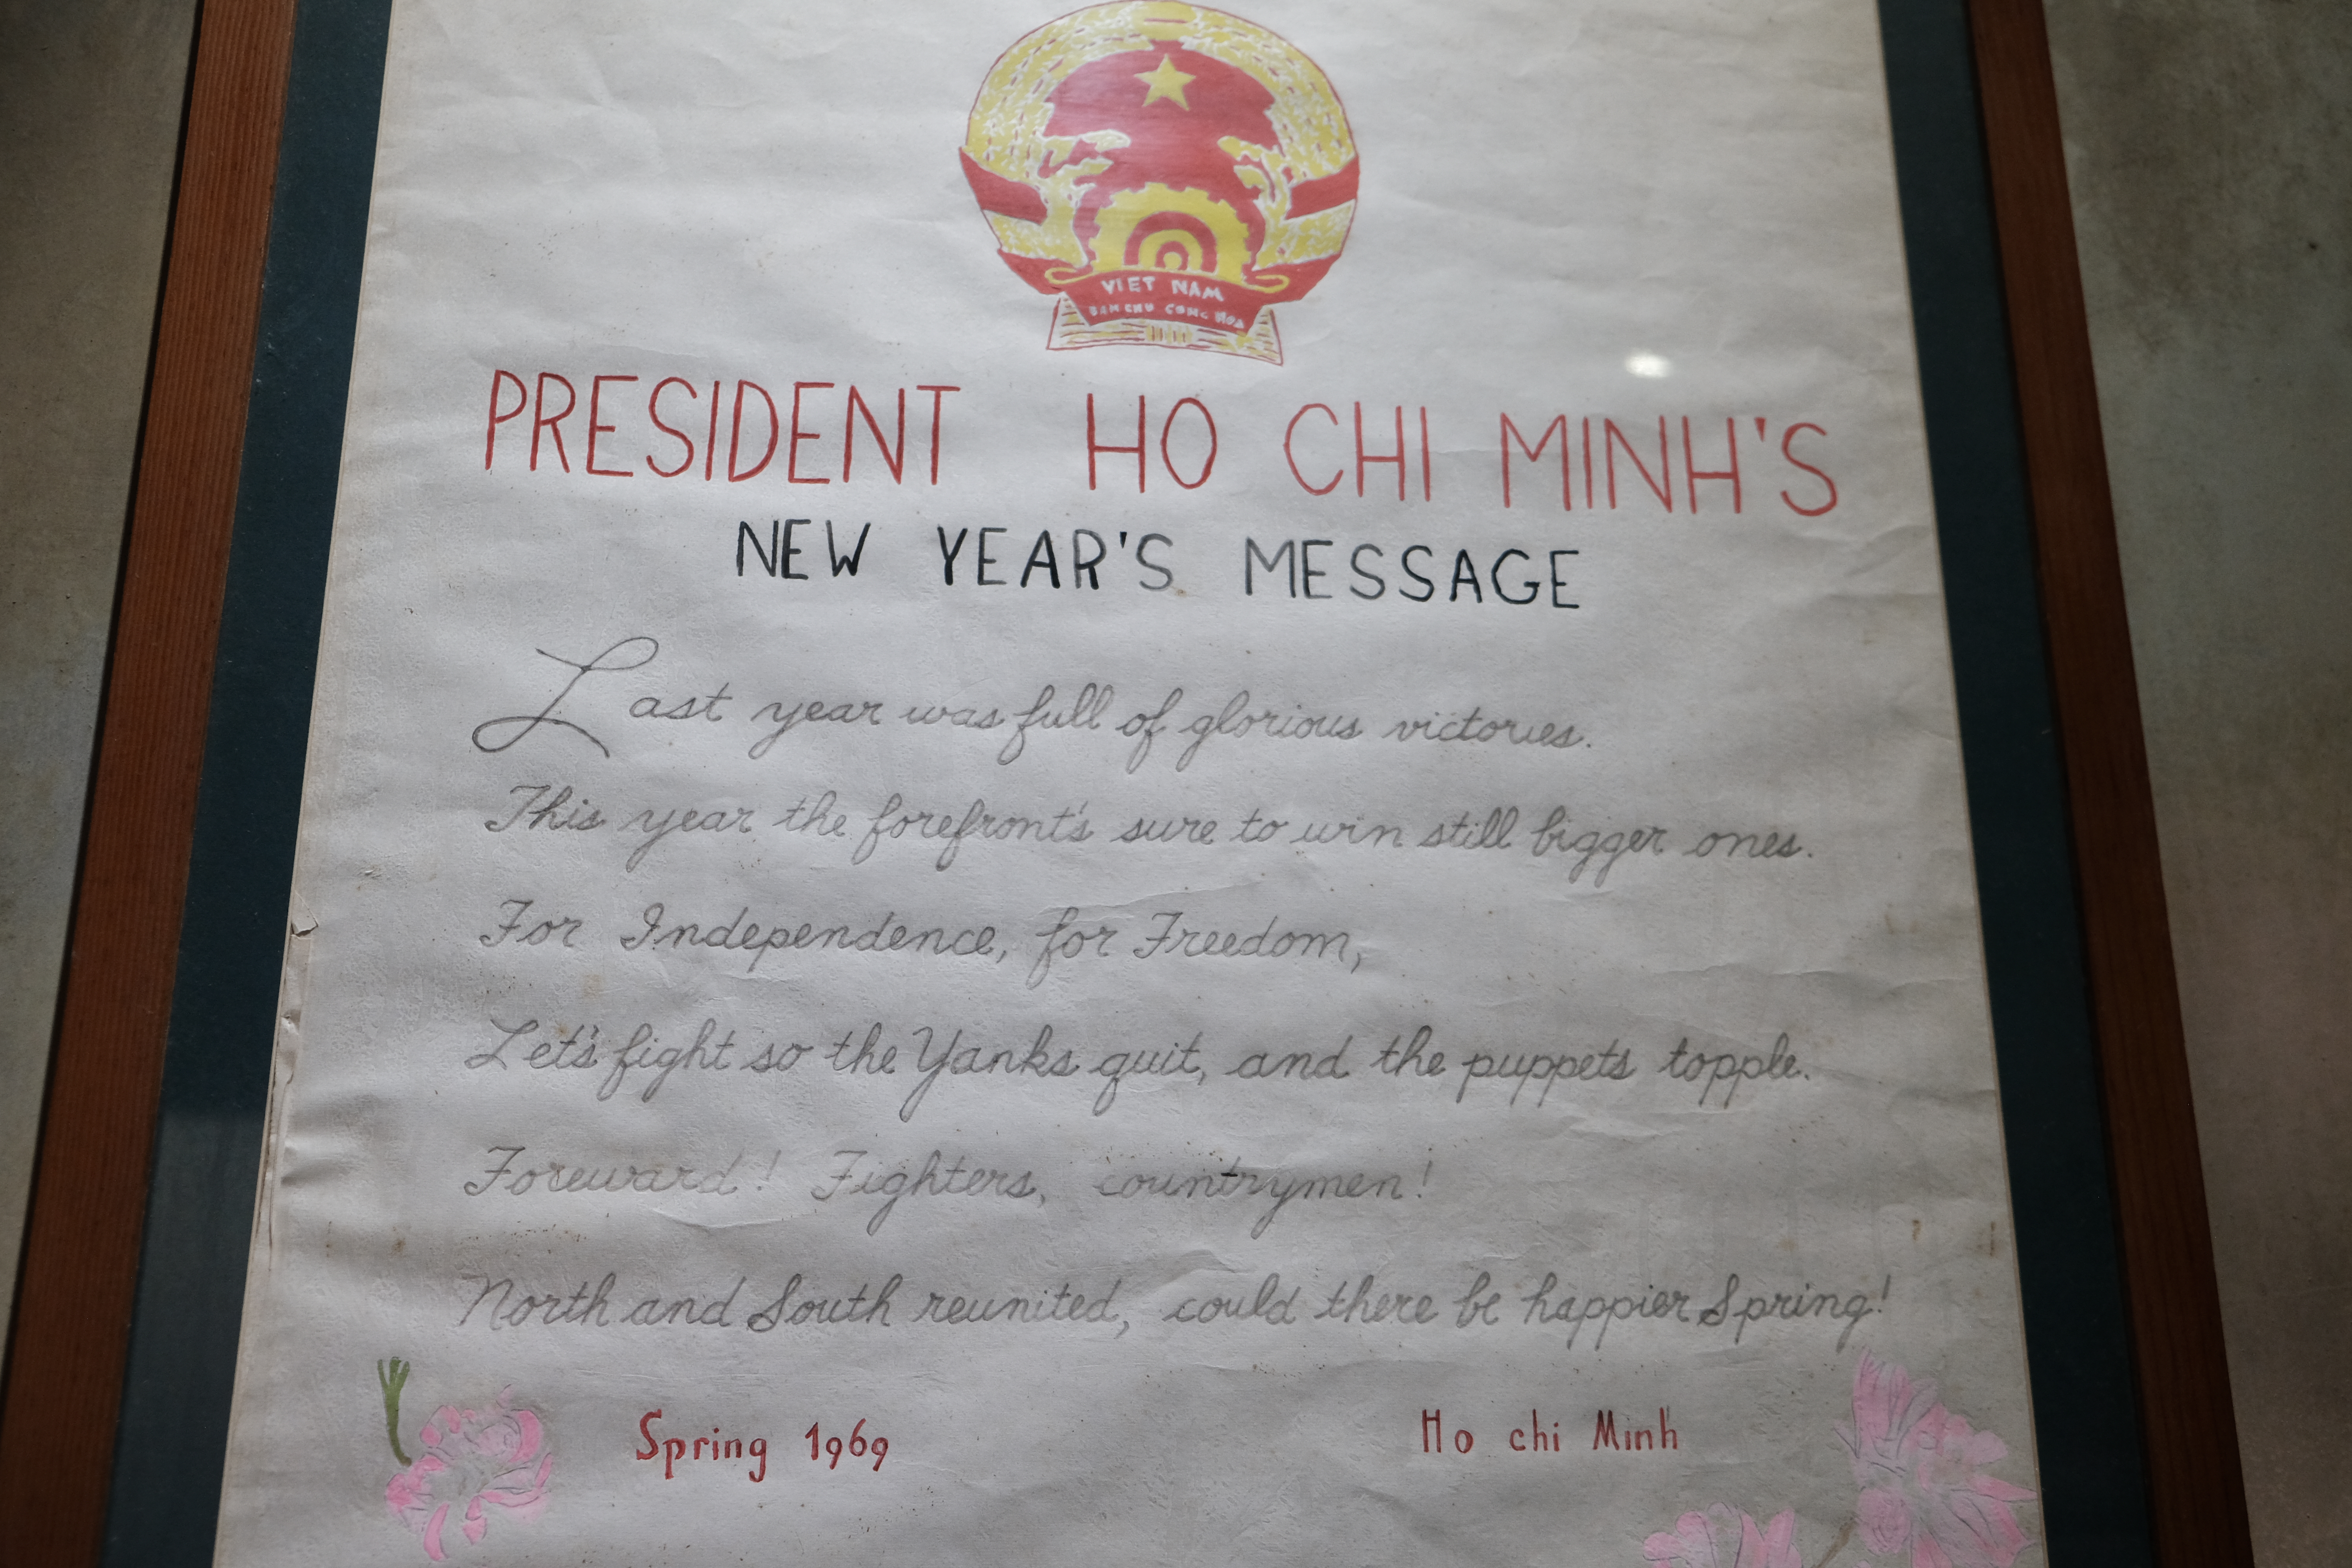 VIET NAM
DAN CHU CONG HOA
PRESIDENT HO CHI MINH'S
NEW YEAR'S MESSAGE
Last year was full of glorious victories.
This year the forefront's sure to win still bigger ones.
For Independence, for Freedom,
Let's fight so the Yanks quit, and the puppets topple.
Foreward! Fighters, countrymen!
North and South reunited, could there be happier Spring!
Spring 1969
Ho chi Minh